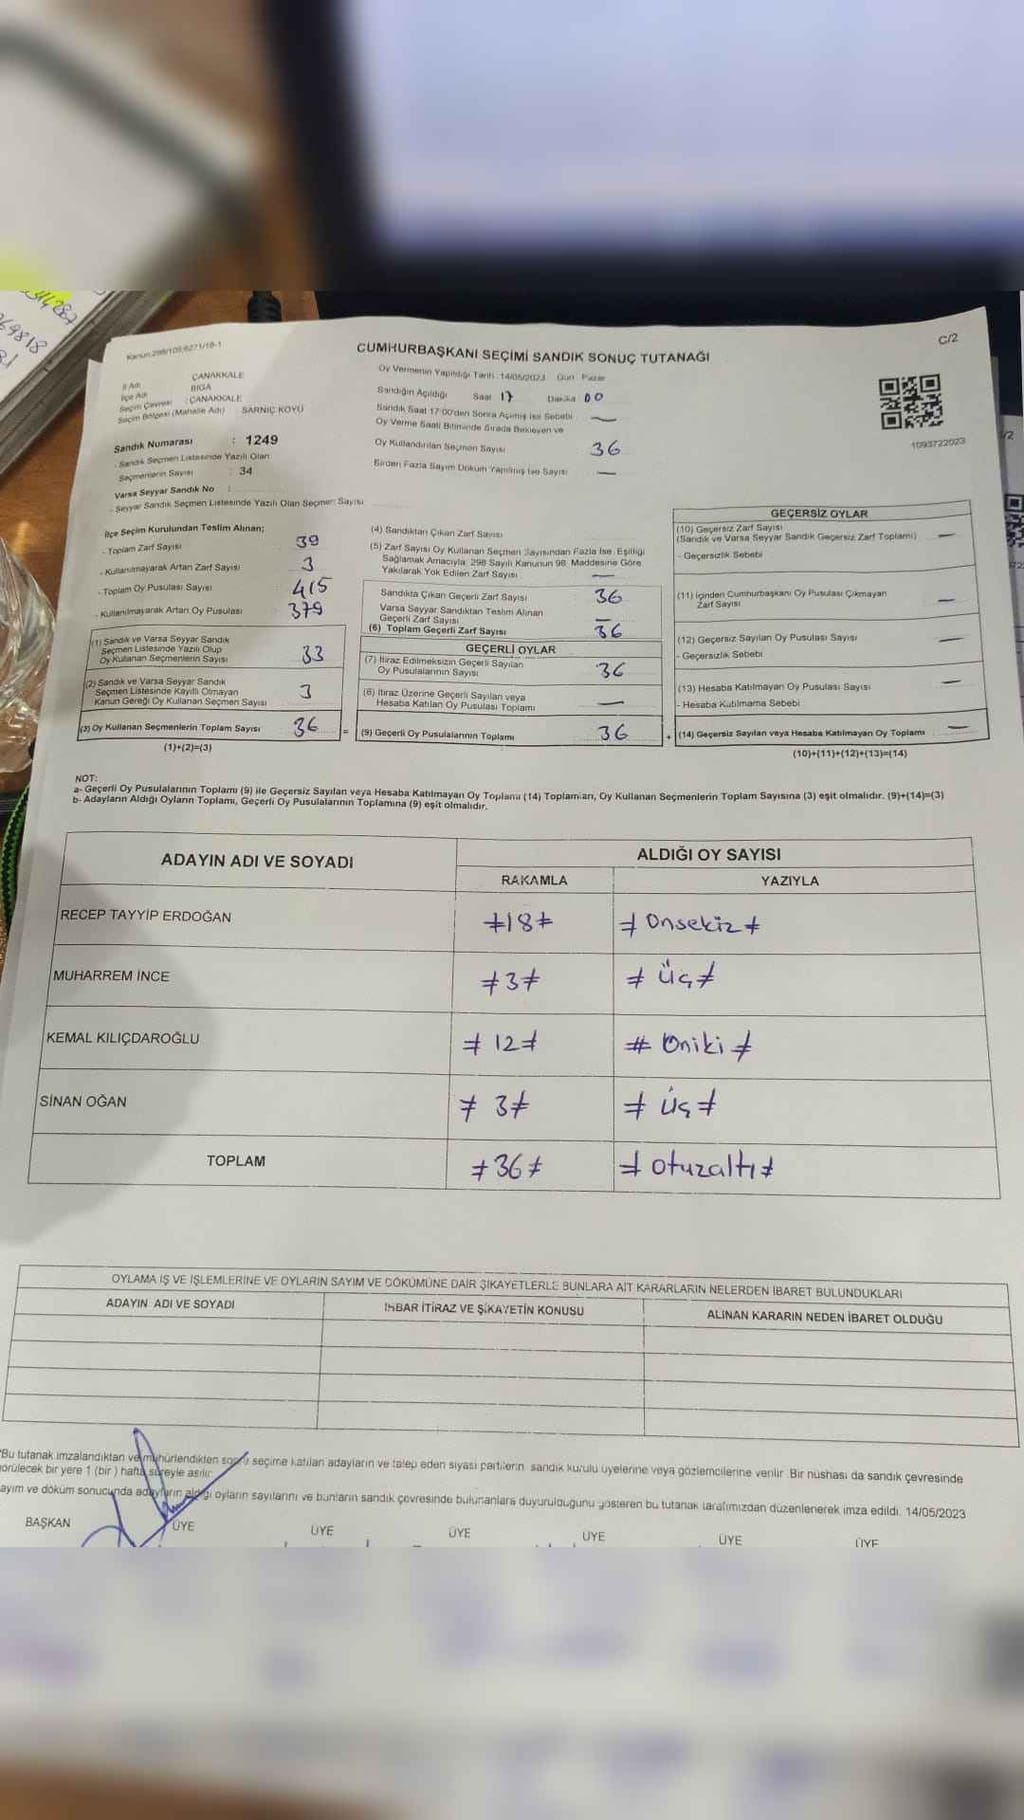 C/2
Kanun:298/105;6271/18-1
CUMHURBAŞKANI SEÇİMİ SANDIK SONUÇ TUTANAĞI
Oy Vermenin Yapıldığı Tarih :14/05/2023 Gün : Pazar
1093722023
İl Adı : ÇANAKKALE
İlçe Adı : BİGA
Seçim Çevresi : ÇANAKKALE
Seçim Bölgesi (Mahalle Adı) : SARNIÇ KÖYÜ
Sandık Numarası : 1249
- Sandık Seçmen Listesinde Yazılı Olan
Seçmenlerin Sayısı : 34
Varsa Seyyar Sandık No :
- Seyyar Sandık Seçmen Listesinde Yazılı Olan Seçmen Sayısı
Sandığın Açıldığı Saat 17 Dakika 00
Sandık Saat 17:00'den Sonra Açılmış İse Sebebi —
Oy Verme Saati Bitiminde Sırada Bekleyen ve
Oy Kullandırılan Seçmen Sayısı 36
Birden Fazla Sayım Döküm Yapılmış İse Sayısı —
İlçe Seçim Kurulundan Teslim Alınan;
- Toplam Zarf Sayısı 39
- Kullanılmayarak Artan Zarf Sayısı 3
- Toplam Oy Pusulası Sayısı 415
- Kullanılmayarak Artan Oy Pusulası 379
(1) Sandık ve Varsa Seyyar Sandık
Seçmen Listesinde Yazılı Olup
Oy Kullanan Seçmenlerin Sayısı 33
(2) Sandık ve Varsa Seyyar Sandık
Seçmen Listesinde Kayıtlı Olmayan
Kanun Gereği Oy Kullanan Seçmen Sayısı 3
(3) Oy Kullanan Seçmenlerin Toplam Sayısı 36 =
(1)+(2)=(3)
(4) Sandıktan Çıkan Zarf Sayısı
(5) Zarf Sayısı Oy Kullanan Seçmen Sayısından Fazla İse, Eşitliği
Sağlamak Amacıyla; 298 Sayılı Kanunun 98. Maddesine Göre
Yakılarak Yok Edilen Zarf Sayısı —
Sandıkta Çıkan Geçerli Zarf Sayısı 36
Varsa Seyyar Sandıktan Teslim Alınan
Geçerli Zarf Sayısı —
(6) Toplam Geçerli Zarf Sayısı 36
GEÇERLİ OYLAR
(7) İtiraz Edilmeksizin Geçerli Sayılan
Oy Pusulalarının Sayısı 36
(8) İtiraz Üzerine Geçerli Sayılan veya
Hesaba Katılan Oy Pusulası Toplamı —
(9) Geçerli Oy Pusulalarının Toplamı 36 +
GEÇERSİZ OYLAR
(10) Geçersiz Zarf Sayısı
(Sandık ve Varsa Seyyar Sandık Geçersiz Zarf Toplamı) —
- Geçersizlik Sebebi
(11) İçinden Cumhurbaşkanı Oy Pusulası Çıkmayan
Zarf Sayısı —
(12) Geçersiz Sayılan Oy Pusulası Sayısı —
- Geçersizlik Sebebi
(13) Hesaba Katılmayan Oy Pusulası Sayısı —
- Hesaba Katılmama Sebebi
(14) Geçersiz Sayılan veya Hesaba Katılmayan Oy Toplamı —
(10)+(11)+(12)+(13)=(14)
NOT:
a- Geçerli Oy Pusulalarının Toplamı (9) ile Geçersiz Sayılan veya Hesaba Katılmayan Oy Toplamı (14) Toplamları, Oy Kullanan Seçmenlerin Toplam Sayısına (3) eşit olmalıdır. (9)+(14)=(3)
b- Adayların Aldığı Oyların Toplamı, Geçerli Oy Pusulalarının Toplamına (9) eşit olmalıdır.
ADAYIN ADI VE SOYADI ALDIĞI OY SAYISI
RAKAMLA YAZIYLA
RECEP TAYYİP ERDOĞAN ≠18≠ ≠ Onsekiz ≠
MUHARREM İNCE ≠3≠ ≠ Üç ≠
KEMAL KILIÇDAROĞLU ≠ 12 ≠ # Oniki ≠
SİNAN OĞAN ≠ 3≠ ≠ Üç ≠
TOPLAM ≠36≠ ≠ otuzaltı ≠
OYLAMA İŞ VE İŞLEMLERİNE VE OYLARIN SAYIM VE DÖKÜMÜNE DAİR ŞİKAYETLERLE BUNLARA AİT KARARLARIN NELERDEN İBARET BULUNDUKLARI
ADAYIN ADI VE SOYADI İHBAR İTİRAZ VE ŞİKAYETİN KONUSU ALINAN KARARIN NEDEN İBARET OLDUĞU
*Bu tutanak imzalandıktan ve mühürlendikten sonra seçime katılan adayların ve talep eden siyasi partilerin sandık kurulu üyelerine veya gözlemcilerine verilir. Bir nüshası da sandık çevresinde
görülecek bir yere 1 (bir) hafta süreyle asılır.
ayım ve döküm sonucunda adayların aldığı oyların sayılarını ve bunların sandık çevresinde bulunanlara duyurulduğunu gösteren bu tutanak tarafımızdan düzenlenerek imza edildi. 14/05/2023
BAŞKAN ÜYE ÜYE ÜYE ÜYE ÜYE ÜYE